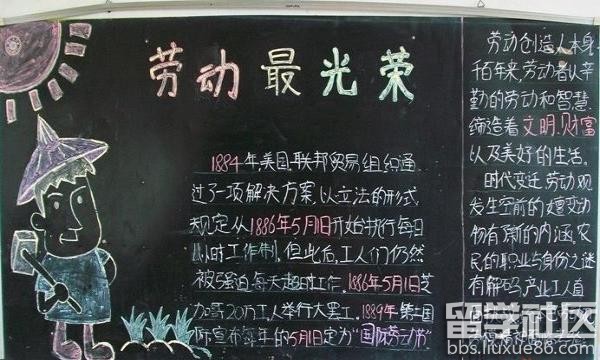 劳动最光荣
1884年,美国联邦贸易组织通
过了一项解决方案,以立法的形式
规定从1886年5月1日开始执行每日
八小时工作制,但此后,工人们仍然
被强迫每天超时工作,1886年5月1日芝
加哥20万工人举行大罢工,1889年第二国
际宣布每年的5月1日定为"国际劳动节"
劳动创造人本身
千百年来,劳动者以辛
勤的劳动和智慧,
缔造着文明,财富
以及美好的生活。
时代变迁,劳动观
发生空前的嬗变,动
物有新的内涵,农
民的职业与身份之谜
有解码,产业工人直
留学社区
bbs.liuxue86.com